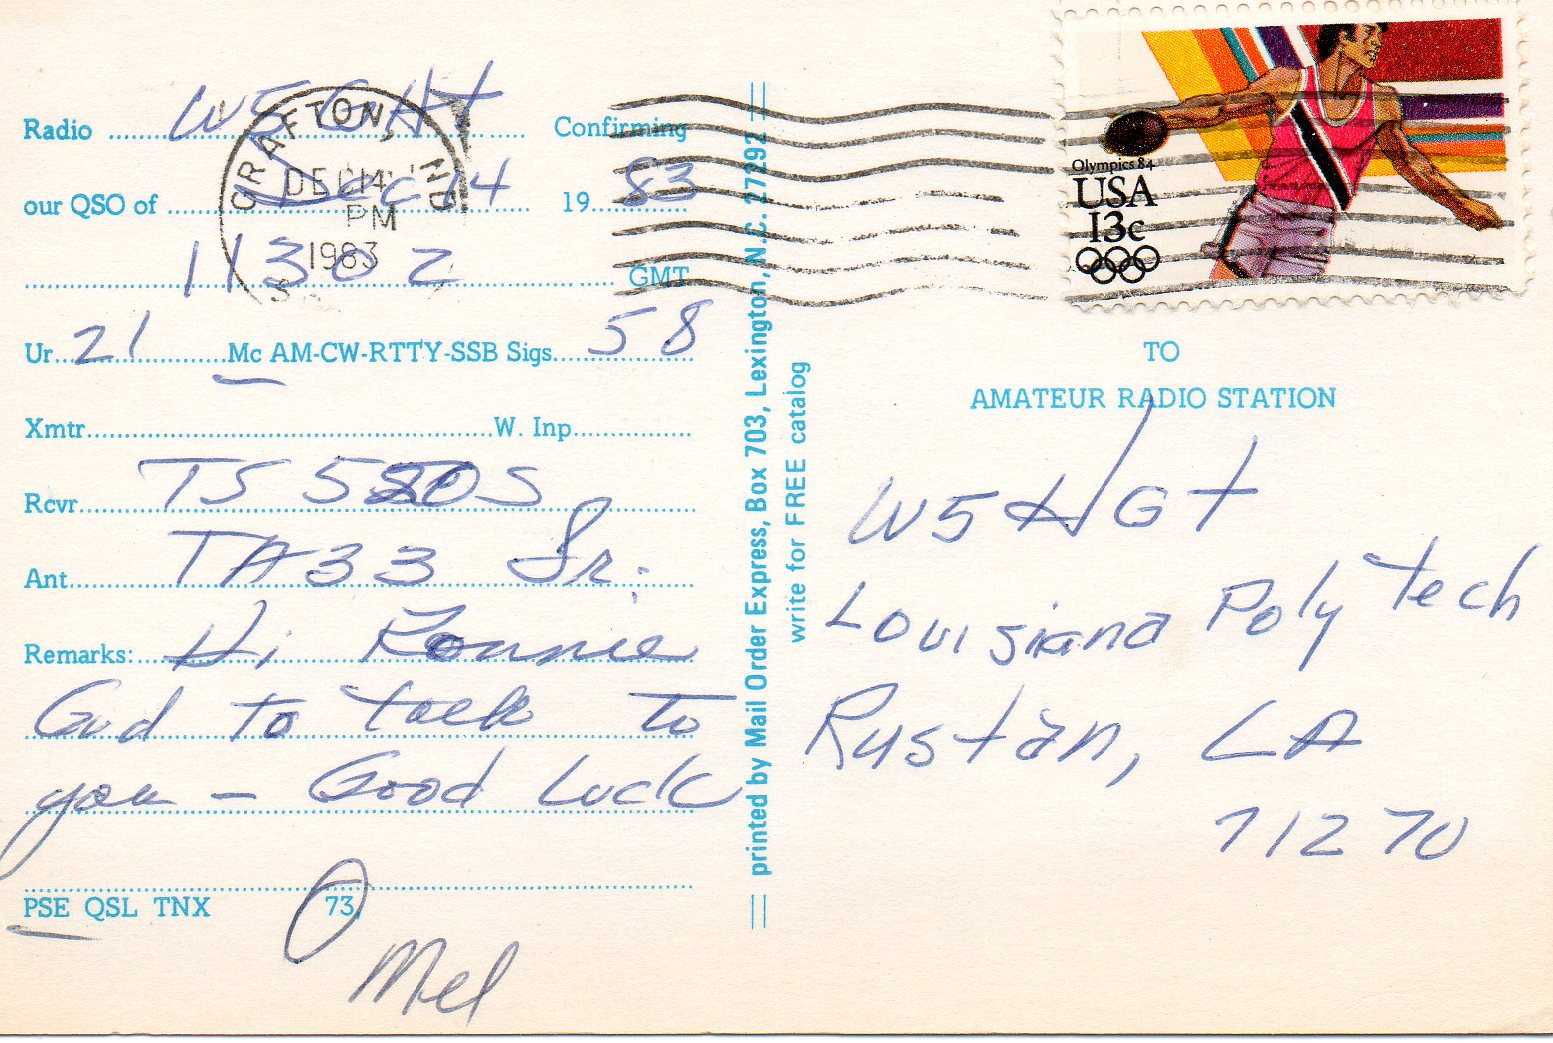 Radio W5GHT Confirming
our QSO of Dec 14 19 83
1130 Z GMT
Ur 21 Mc AM-CW-RTTY-SSB Sigs 58
Xmtr W. Inp
Rcvr TS 520S
Ant TA33 Jr.
Remarks: Hi Ronnie
Gud to talk to
you - Good Luck
PSE QSL TNX 73,
Mel
GRAFTON, ND
DEC 14
PM
1983
printed by Mail Order Express, Box 703, Lexington, N.C. 27292
write for FREE catalog
Olympics 84
USA
13c
TO
AMATEUR RADIO STATION
W5HGT
Louisiana Poly Tech
Rustan, LA
71270